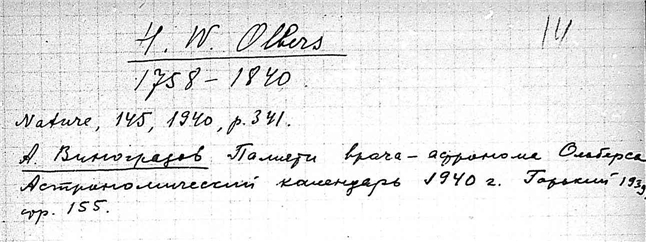 H. W. Olbers
14
1758 – 1840.
Nature, 145, 1940, p. 341.
А. Виноградов Памяти врача-астронома Ольберса
Астрономический календарь 1940 г. Горький 1939,
стр. 155.